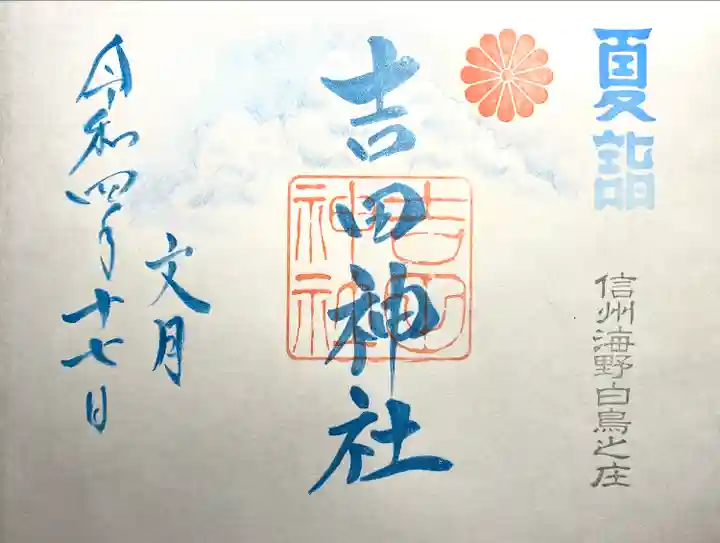 夏詣
信州海野白鳥之庄
吉田神社
吉田神社
文月
令和四年十七日